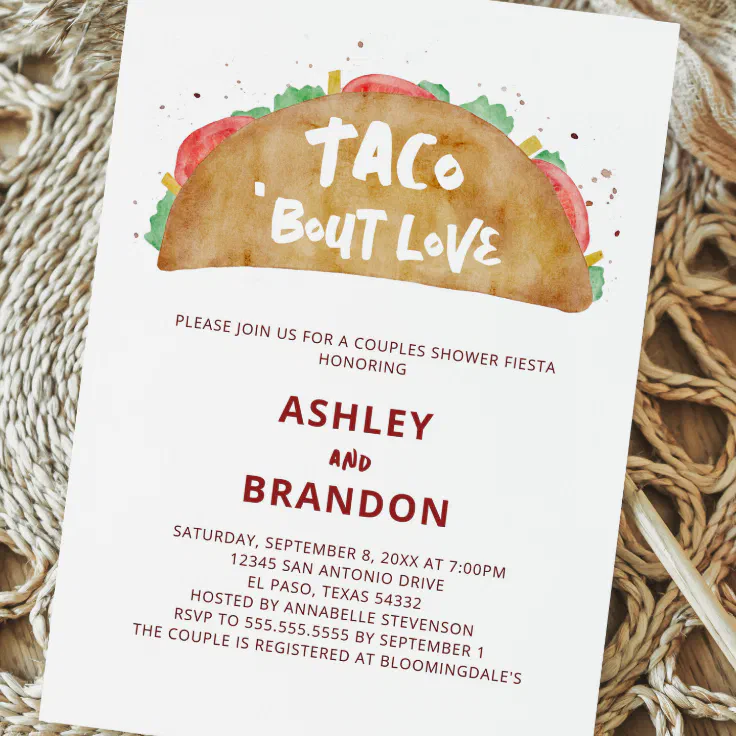 TACO
'BOUT LOVE
PLEASE JOIN US FOR A COUPLES SHOWER FIESTA
HONORING
ASHLEY
AND
BRANDON
SATURDAY, SEPTEMBER 8, 20XX AT 7:00PM
12345 SAN ANTONIO DRIVE
EL PASO, TEXAS 54332
HOSTED BY ANNABELLE STEVENSON
RSVP TO 555.555.5555 BY SEPTEMBER 1
THE COUPLE IS REGISTERED AT BLOOMINGDALE'S